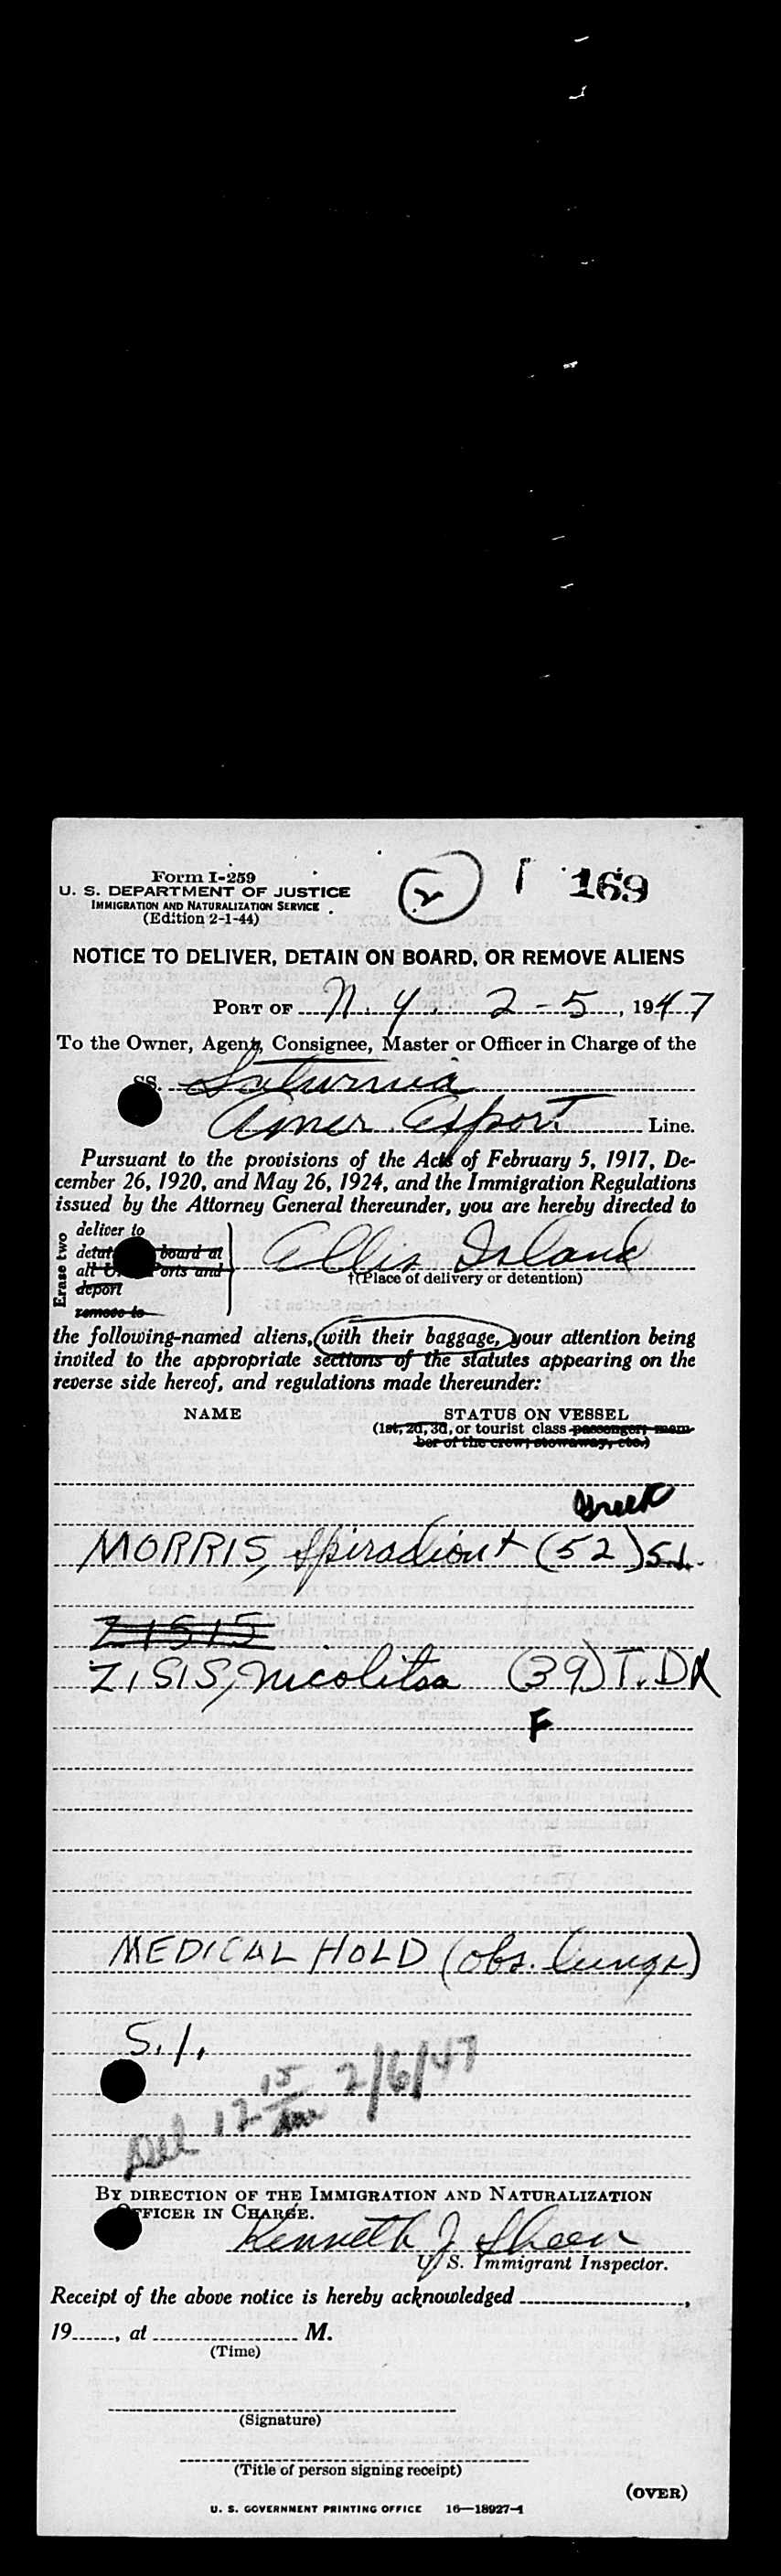 Form I-259
U. S. DEPARTMENT OF JUSTICE
IMMIGRATION AND NATURALIZATION SERVICE
(Edition 2-1-44)
2
169
NOTICE TO DELIVER, DETAIN ON BOARD, OR REMOVE ALIENS
PORT OF N. Y. 2-5, 1947
To the Owner, Agent, Consignee, Master or Officer in Charge of the
SS. Saturnia
Amer Export Line.
Pursuant to the provisions of the Acts of February 5, 1917, De-
cember 26, 1920, and May 26, 1924, and the Immigration Regulations
issued by the Attorney General thereunder, you are hereby directed to
Erase two
deliver to
board at
all U. Ports and
deport
remove to
Ellis Island
†(Place of delivery or detention)
the following-named aliens, with their baggage, your attention being
invited to the appropriate sections of the statutes appearing on the
reverse side hereof, and regulations made thereunder:
NAME STATUS ON VESSEL
(1st, 2d, 3d, or tourist class passenger, mem-
ber of the crew, stowaway, etc.)
Greek
MORRIS, (52) S.I.
ZISIS, Nicolitsa (39) T.D
F
MEDICAL HOLD (obs. lungs)
S.I.
Del 12 15 2/6/47
BY DIRECTION OF THE IMMIGRATION AND NATURALIZATION
OFFICER IN CHARGE.
Kenneth J Sheen
U. S. Immigrant Inspector.
Receipt of the above notice is hereby acknowledged ,
19 , at M.
(Time)
(Signature)
(Title of person signing receipt)
(OVER)
U. S. GOVERNMENT PRINTING OFFICE 16—18927-1